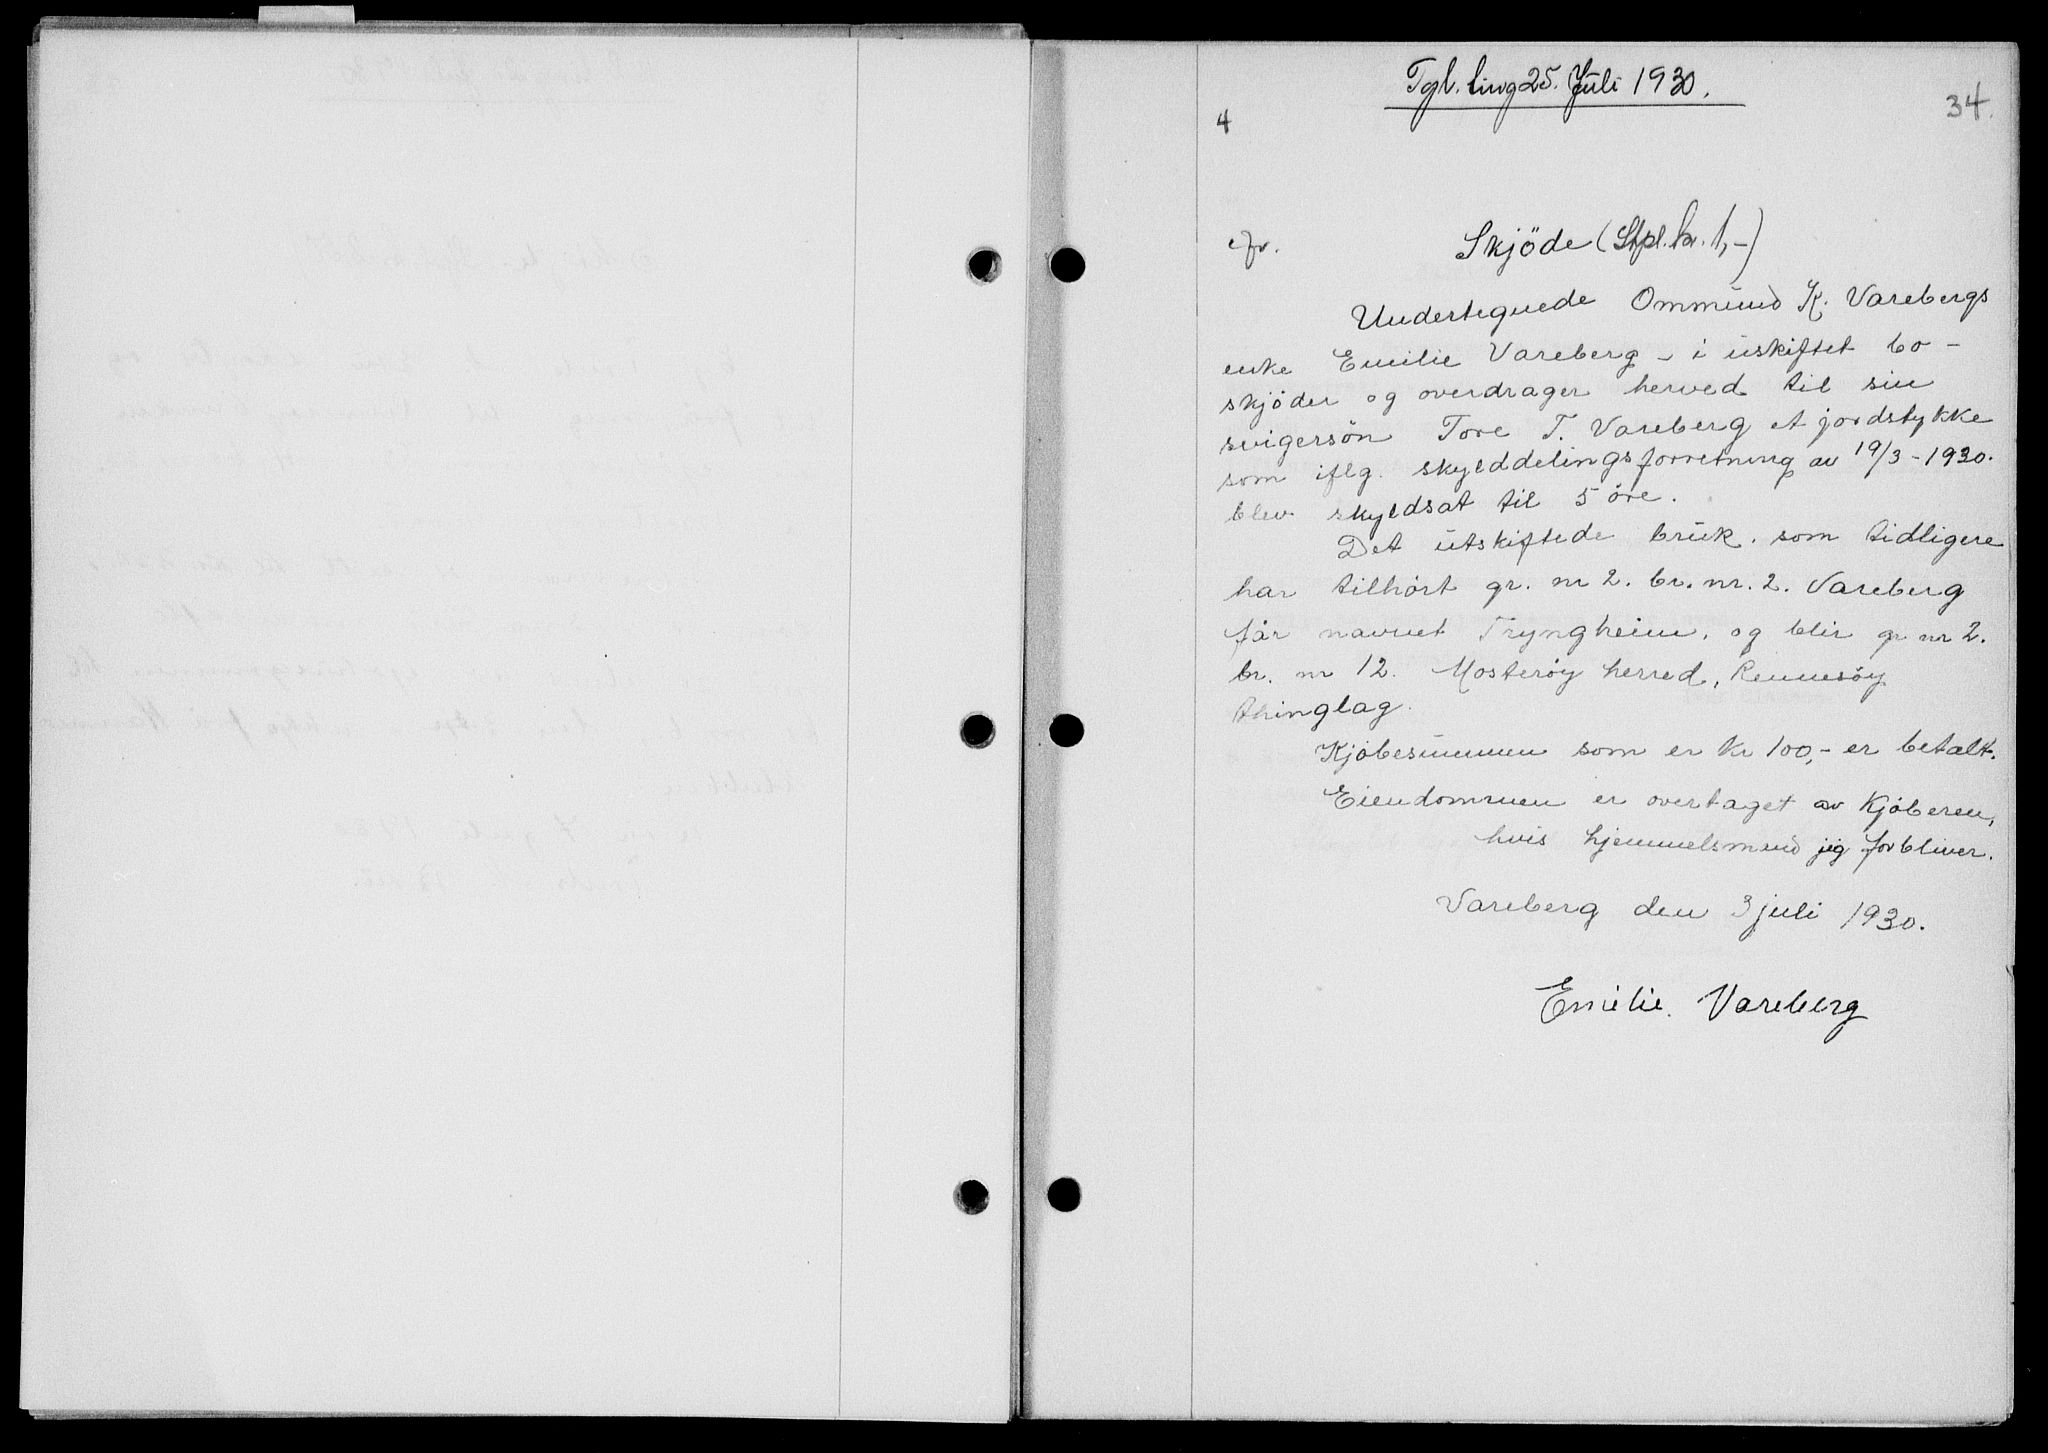 Tgl. ting 25. Juli 1930.
34.
4
cfr.
Skjöde (Stpl. kr. 1,-)
Undertegnede Ommund K. Varebergs
enke Emilie Vareberg - i uskiftet bo -
skjöder og overdrager herved til sin
svigersön Tore T. Vareberg et jordstykke
som iflg. skylddelingsforretning av 19/3-1930.
blev skyldsat til 5 öre.
Det utskiftede bruk. som tidligere
har tilhört gr. nr 2. br. nr. 2. Vareberg
får navnet Tryngheim, og blir gr nr 2.
br. nr 12. Mosteröy herred, Rennesöy
thinglag.
Kjöbesummen som er kr 100,- er betalt.
Eiendommen er overtaget av kjöberen,
hvis hjemmelsmand jeg forbliver.
Vareberg den 3 juli 1930.
Emilie Vareberg